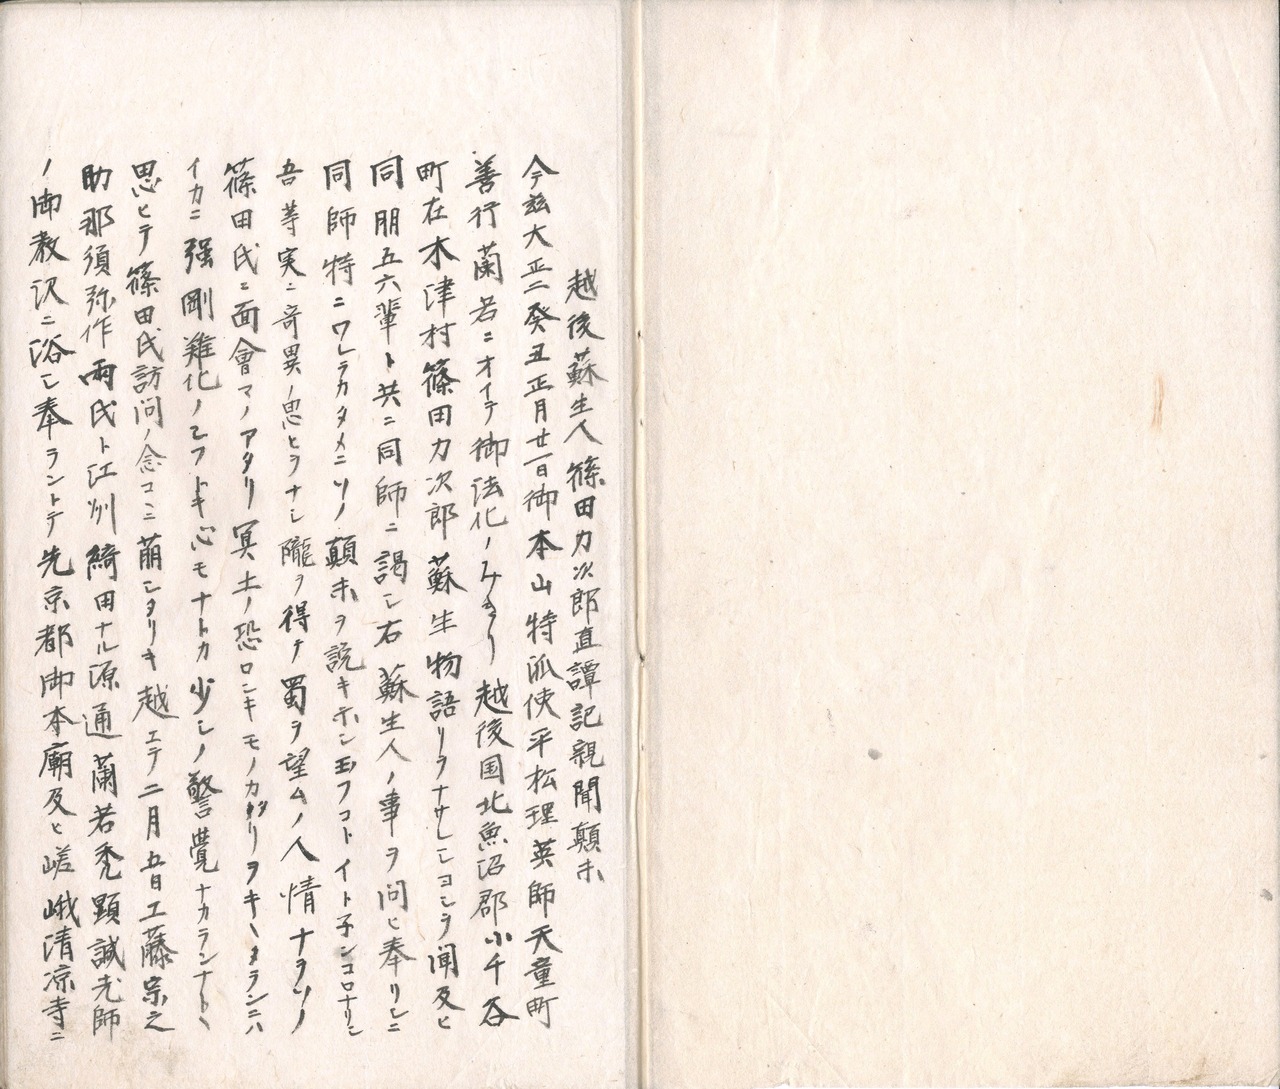 越後蘇生人篠田力次郎直譚記親聞顛末
今玆大正二癸丑正月廿一日御本山特派使平松理英師天童町
善行蘭若ニオイテ御法化ノみきり越後国北魚沼郡小千谷
町在木津村篠田力次郎蘇生物語リヲナサレシヨシヲ聞及ヒ
同朋五六輩ト共ニ同師ニ謁シ右蘇生人ノ事ヲ問ヒ奉リシニ
同師特ニワレラカタメニソノ顛末ヲ説キ示シ玉フコトイト子ンコロナリシ
吾等実ニ奇異ノ思ヒヲナシ隴ヲ得テ蜀ヲ望ムノ人情ナヲソノ
篠田氏ニ面會マノアタリ冥土ノ恐ロシキモノカタリヲキヽタランニハ
イカニ強剛難化ノシフトキ心モナトカ少シノ警覺ナカランナト丶
思ヒテ篠田氏訪問ノ念コヽニ萠シタリキ越エテ二月五日工藤宗之
助那須弥作両氏ト江州綺田ナル源通蘭若禿顕誠老師
ノ御教沢ニ浴シ奉ラントテ先京都御本廟及ヒ嵯峨清凉寺ニ